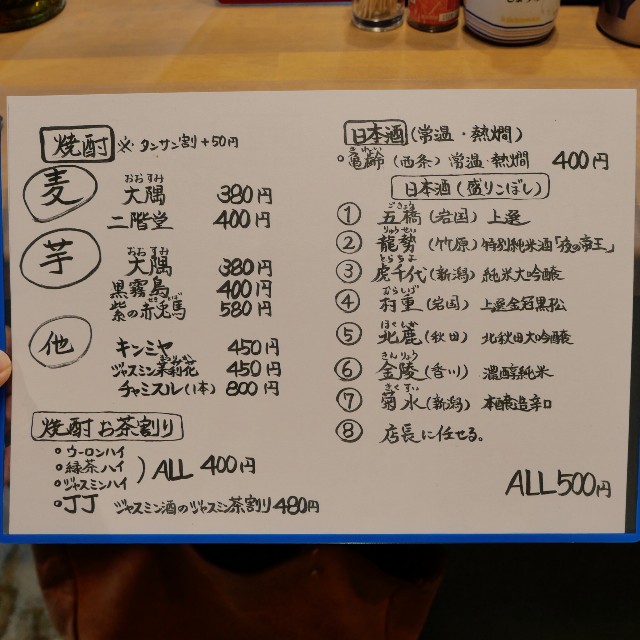 焼酎 ※タンサン割+50円
麦
おおすみ
大隅 380円
二階堂 400円
芋
おおすみ
大隅 380円
黒霧島 400円
紫の赤兎馬 580円
他
キンミヤ 450円
ジャスミン茉莉花 450円
チャミスル(1本) 800円
焼酎お茶割り
・ウーロンハイ
・緑茶ハイ
・ジャスミンハイ
) ALL 400円
・JJ ジャスミン酒のジャスミン茶割り 480円
日本酒 (常温・熱燗)
・亀齢 (西条) 常温・熱燗 400円
日本酒(盛りこぼし)
ごきょう
① 五橋(岩国) 上選
りゅうせい
② 龍勢 (竹原) 特別純米酒「夜の帝王」
とらちよ
③ 虎千代(新潟) 純米大吟醸
むらしげ
④ 村重(岩国) 上選金冠黒松
ほくしか
⑤ 北鹿(秋田) 北秋田大吟醸
きんりょう
⑥ 金陵(香川) 濃醇純米
きくすい
⑦ 菊水(新潟) 本醸造辛口
⑧ 店長に任せる。
ALL 500円